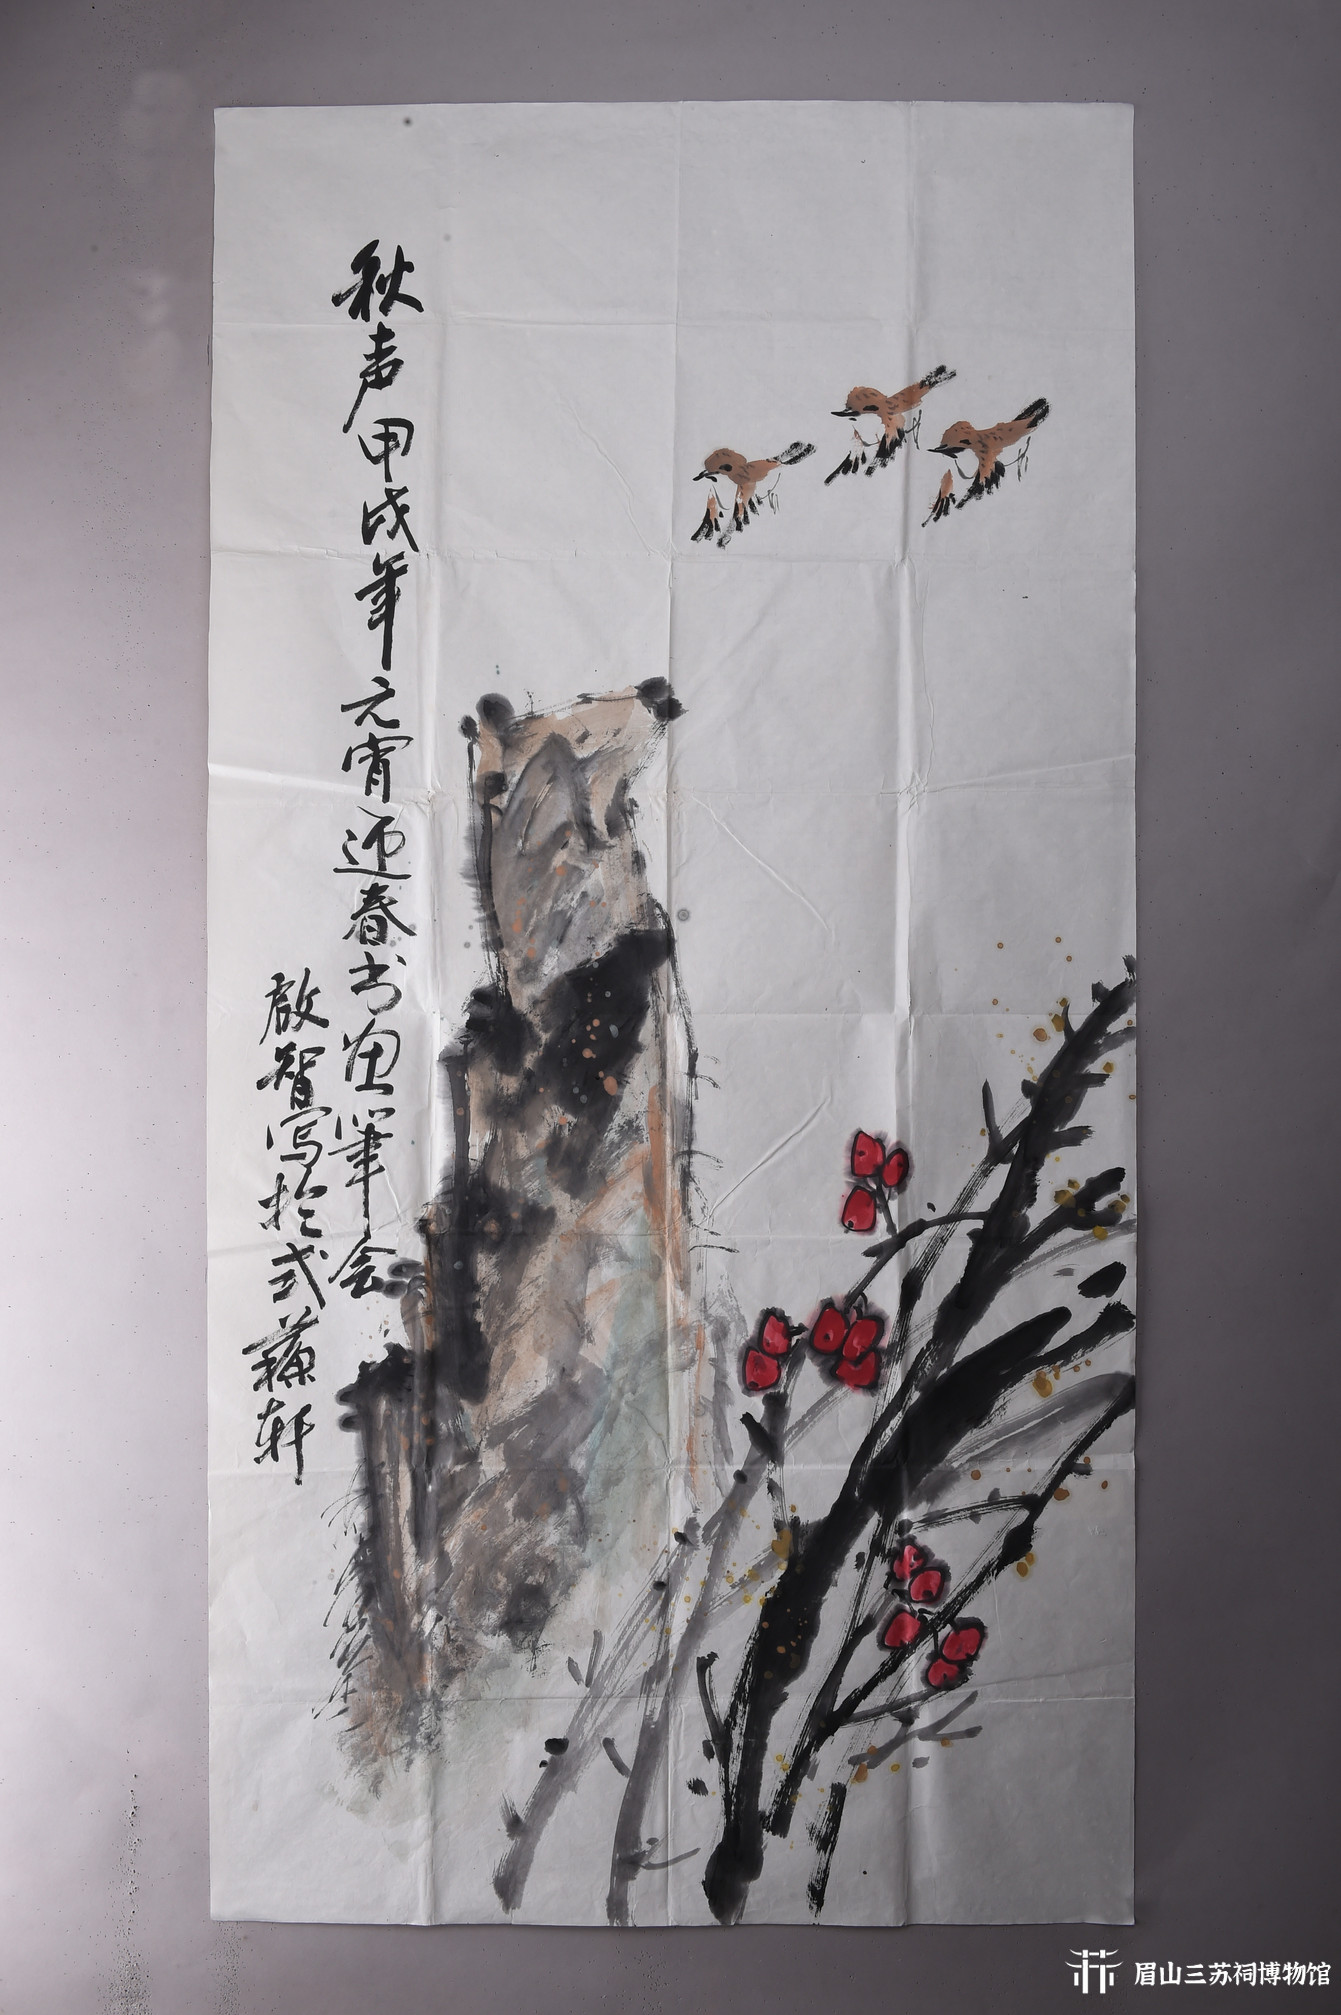 秋声甲戌年元宵迎春书画筆会
啟智写於式蘓轩
眉山三苏祠博物馆